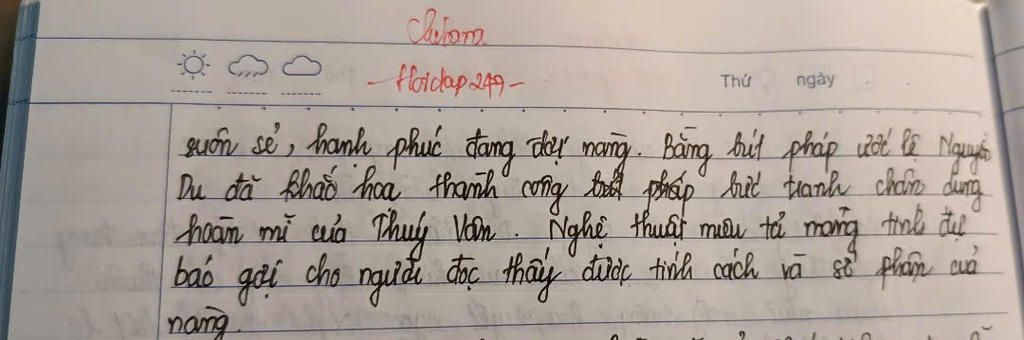 Chihara
- Hoidap249 -
Thứ ngày
suôn sẻ, hạnh phúc đang đợi nàng. Bằng bút pháp ước lệ Nguyễn
Du đã khắc họa thành công bức tranh chân dung
hoàn mĩ của Thuý Vân. Nghệ thuật miêu tả mang tính dự
báo gợi cho người đọc thấy được tính cách và số phận của
nàng.